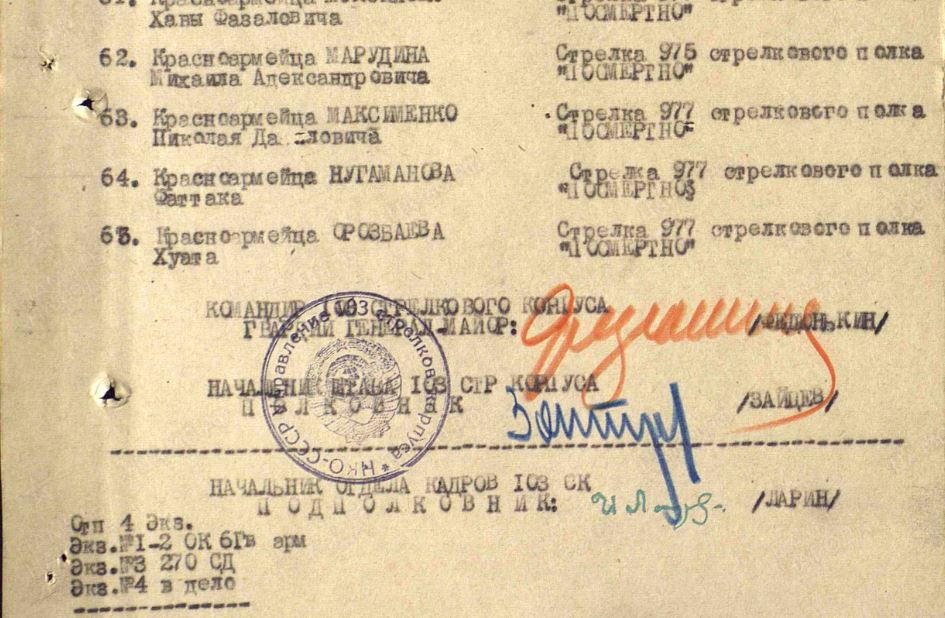 61. Красноармейца
Хавы Фазаловича "ПОСМЕРТНО"
62. Красноармейца МАРУДИНА Стрелка 975 стрелкового полка
Михаила Александровича "ПОСМЕРТНО"
63. Красноармейца МАКСИМЕНКО Стрелка 977 стрелкового полка
Николая "ПОСМЕРТНО"
64. Красноармейца НУГАМАНОВА Стрелка 977 стрелкового полка
Фаттака "ПОСМЕРТНО"
65. Красноармейца ОРОЗБАЕВА Стрелка 977 стрелкового полка
Хуата "ПОСМЕРТНО"
КОМАНДИР 103 СТРЕЛКОВОГО КОРПУСА
ГВАРДИИ ГЕНЕРАЛ-МАЙОР: /ФЕДОНЬКИН/
НАЧАЛЬНИК ШТАБА 103 СТР КОРПУСА
ПОЛКОВНИК /ЗАЙЦЕВ/
Управление 103 стрелков. корпуса * НКО-СССР
НАЧАЛЬНИК ОТДЕЛА КАДРОВ 103 СК
ПОДПОЛКОВНИК: /ЛАРИН/
Отп 4 Экз.
Экз.№1-2 ОК 6Гв арм
Экз.№3 270 СД
Экз.№4 в дело